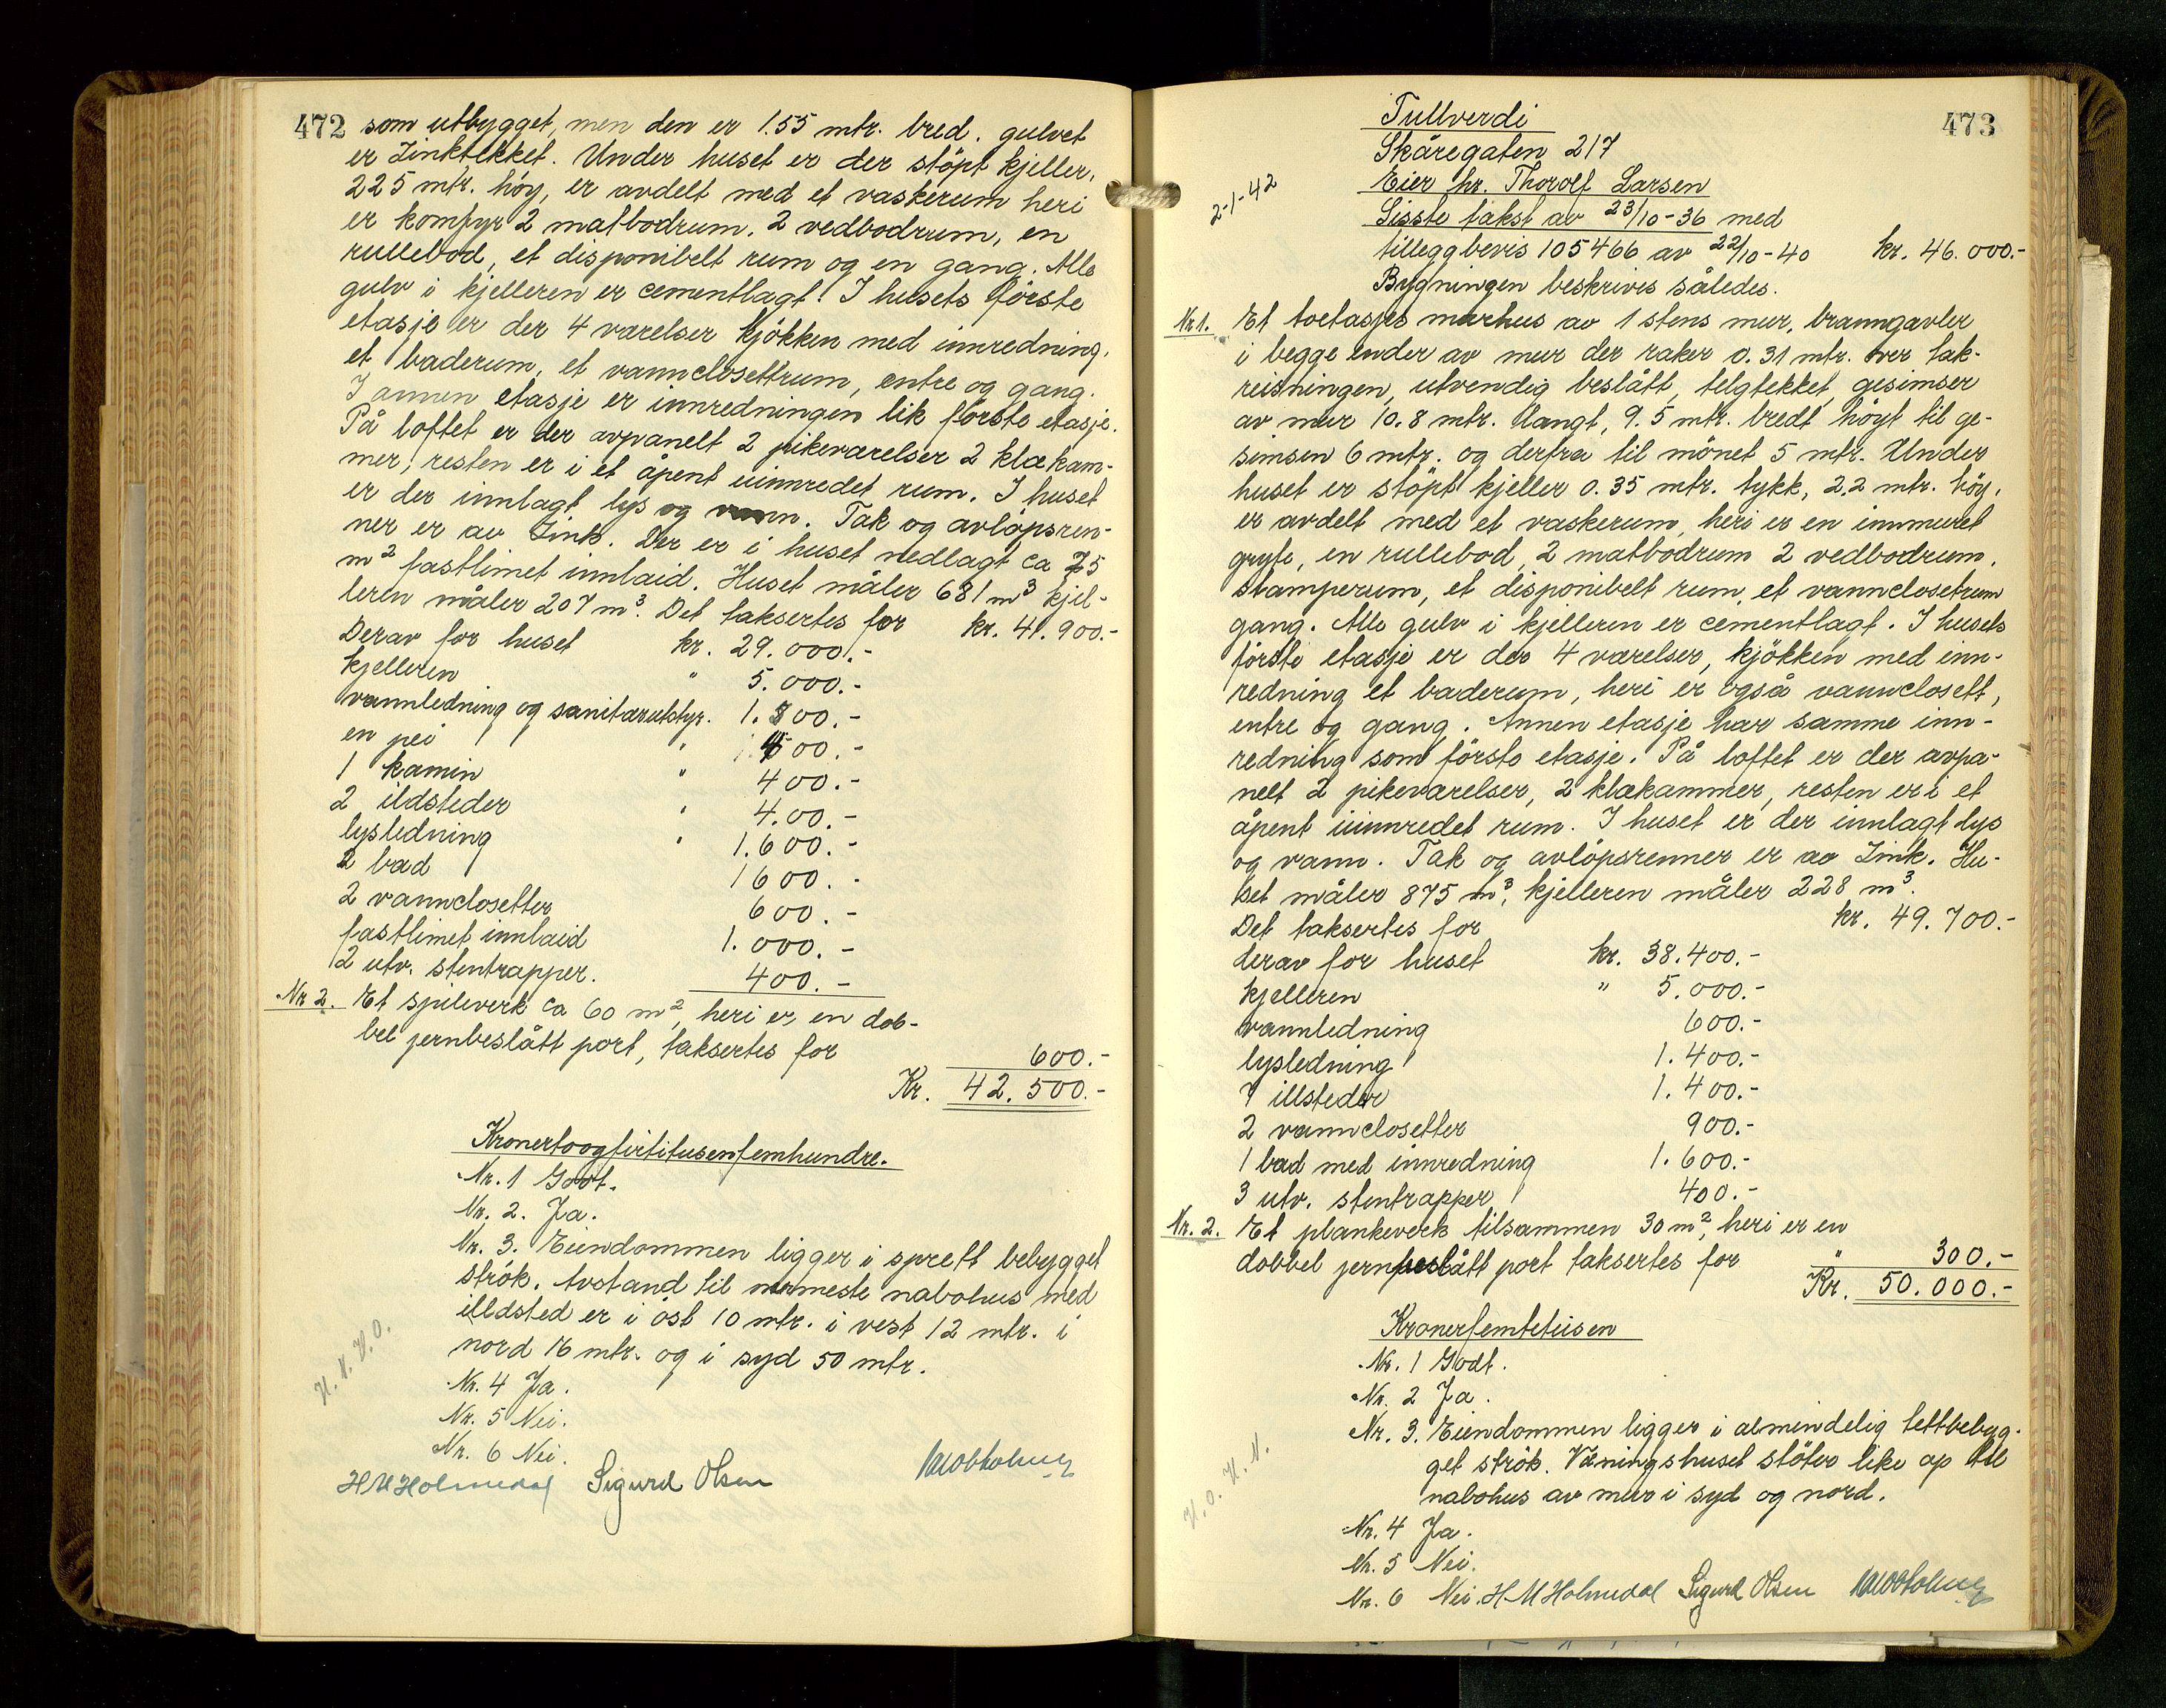 472
som utbygget, men den er 1.55 mtr. bred. gulvet
er Zinktekket. Under huset er der stöpt kjeller,
225 mtr. höy, er avdelt med et vaskerum heri
er komfyr 2 matbodrum. 2 vedbodrum, en
rullebod, et disponibelt rum og en gang. Alle
gulv i kjelleren er cementlagt. I husets förste
etasje er der 4 værelser kjökken med innredning,
et baderum, et vannclosettrum, entre og gang.
I annen etasje er innredningen lik förste etasje.
På loftet er der avpanelt 2 pikeværelser 2 klækam-
mer, resten er i et åpent uinnredet rum. I huset
er der innlagt lys og vann. Tak og avlöpsren-
ner er av Zink. Der er i huset nedlagt ca 75
m² fastlimet innlaid. Huset måler 681 m³ kjel-
leren måler 207 m³. Det taksertes for kr. 41.900.-
Derav for huset kr. 29.000.-
kjelleren " 5.000.-
vannledning og sanitærutstyr. 1.500.-
en pei " 400.-
1 kamin " 400.-
2 ildsteder " 4.00.-
lysledning " 1.600.-
2 bad 1600.-
2 vannclosetter 600.-
fastlimet innlaid 1.000.-
2 utv. stentrapper. 400.-
Nr 2. Et spileverk ca 60 m², heri er en dob-
bel jernbeslått port, taksertes for 600.-
Kr. 42.500.-
Kronertoogførtitusenfemhundre.
Nr. 1 Godt.
Nr. 2. Ja.
Nr. 3. Eiendommen ligger i sprett bebygget
strök. Avstand til nærmeste nabohus med
illdsted er i öst 10 mtr. i vest 12 mtr. i
nord 16 mtr. og i syd 50 mtr.
Nr. 4 Ja.
Nr. 5 Nei.
Nr. 6 Nei.
H M Holmedal Sigurd Olsen
473
Tullverdi
Skåregaten 217
2-1-42
Eier hr. Thorolf Larsen
Sisste takst av 23/10-36 med
tilleggbevis 105466 av 22/10-40 kr. 46.000.-
Bygningen beskrives således.
Nr 1. Et toetasjes murhus av 1 stens mur, branngavler
i begge ender av mur der raker 0.31 mtr. over tak-
reisningen, utvendig beslått, telgtekket, gesimser
av mur 10.8 mtr. langt, 9.5 mtr. bredt höyt til ge-
simsen 6 mtr. og derfra til mönet 5 mtr. Under
huset er stöpt kjeller 0.35 mtr. tykk, 2.2 mtr. höy,
er avdelt med et vaskerum, heri er en innmuret
gryte, en rullebod, 2 matbodrum 2 vedbodrum,
stamperum, et disponibelt rum, et vannclosetrum
gang. Alle gulv i kjelleren er cementlagt. I husets
förste etasje er der 4 værelser, kjökken med inn-
redning et baderum, heri er også vannclosett,
entre og gang. Annen etasje har samme inn-
redning som förste etasje. På loftet er der avpa-
nelt 2 pikeværelser, 2 klækammer, resten er i et
åpent uinnredet rum. I huset er der innlagt lys
og vann. Tak og avlöpsrenner er av Zink. Hu-
set måler 875 m³, kjelleren måler 228 m³.
Det taksertes for kr. 49.700.-
derav for huset kr. 38.400.-
kjelleren " 5.000.-
vannledning 600.-
lysledning 1.400.-
7 illsteder 1.400.-
2 vannclosetter 900.-
1 bad med innredning 1.600.-
3 utv. stentrapper 400.-
Nr. 2. Et plankeverk tilsammen 30 m², heri er en
dobbel jernbeslått port taksertes for " 300.-
Kr. 50.000.-
Kronerfemtetusen
Nr. 1 Godt.
Nr. 2 Ja.
Nr. 3. Eiendommen ligger i almindelig tettbebyg-
get strök. Våningshuset stöter like op til
nabohus av mur i syd og nord.
Nr. 4 Ja.
Nr. 5 Nei.
Nr. 6 Nei. H M Holmedal Sigurd Olsen